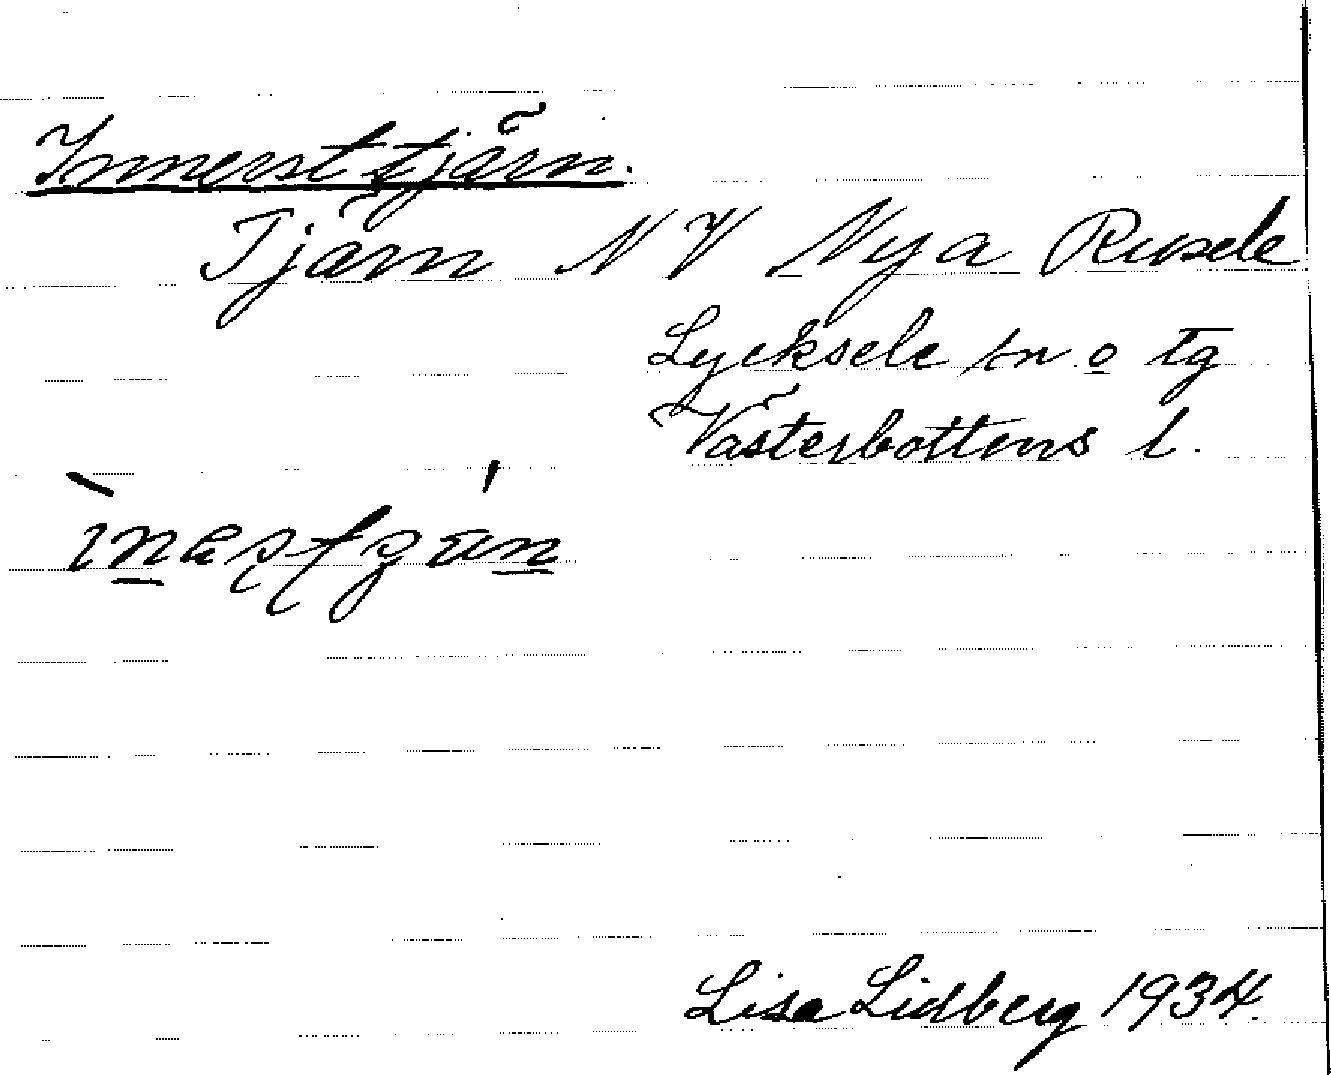 Innersttjärn.
Tjärn NV Nya Rusele
Lycksele sn o tg
Västerbottens l.
Lisa Lidberg 1934.